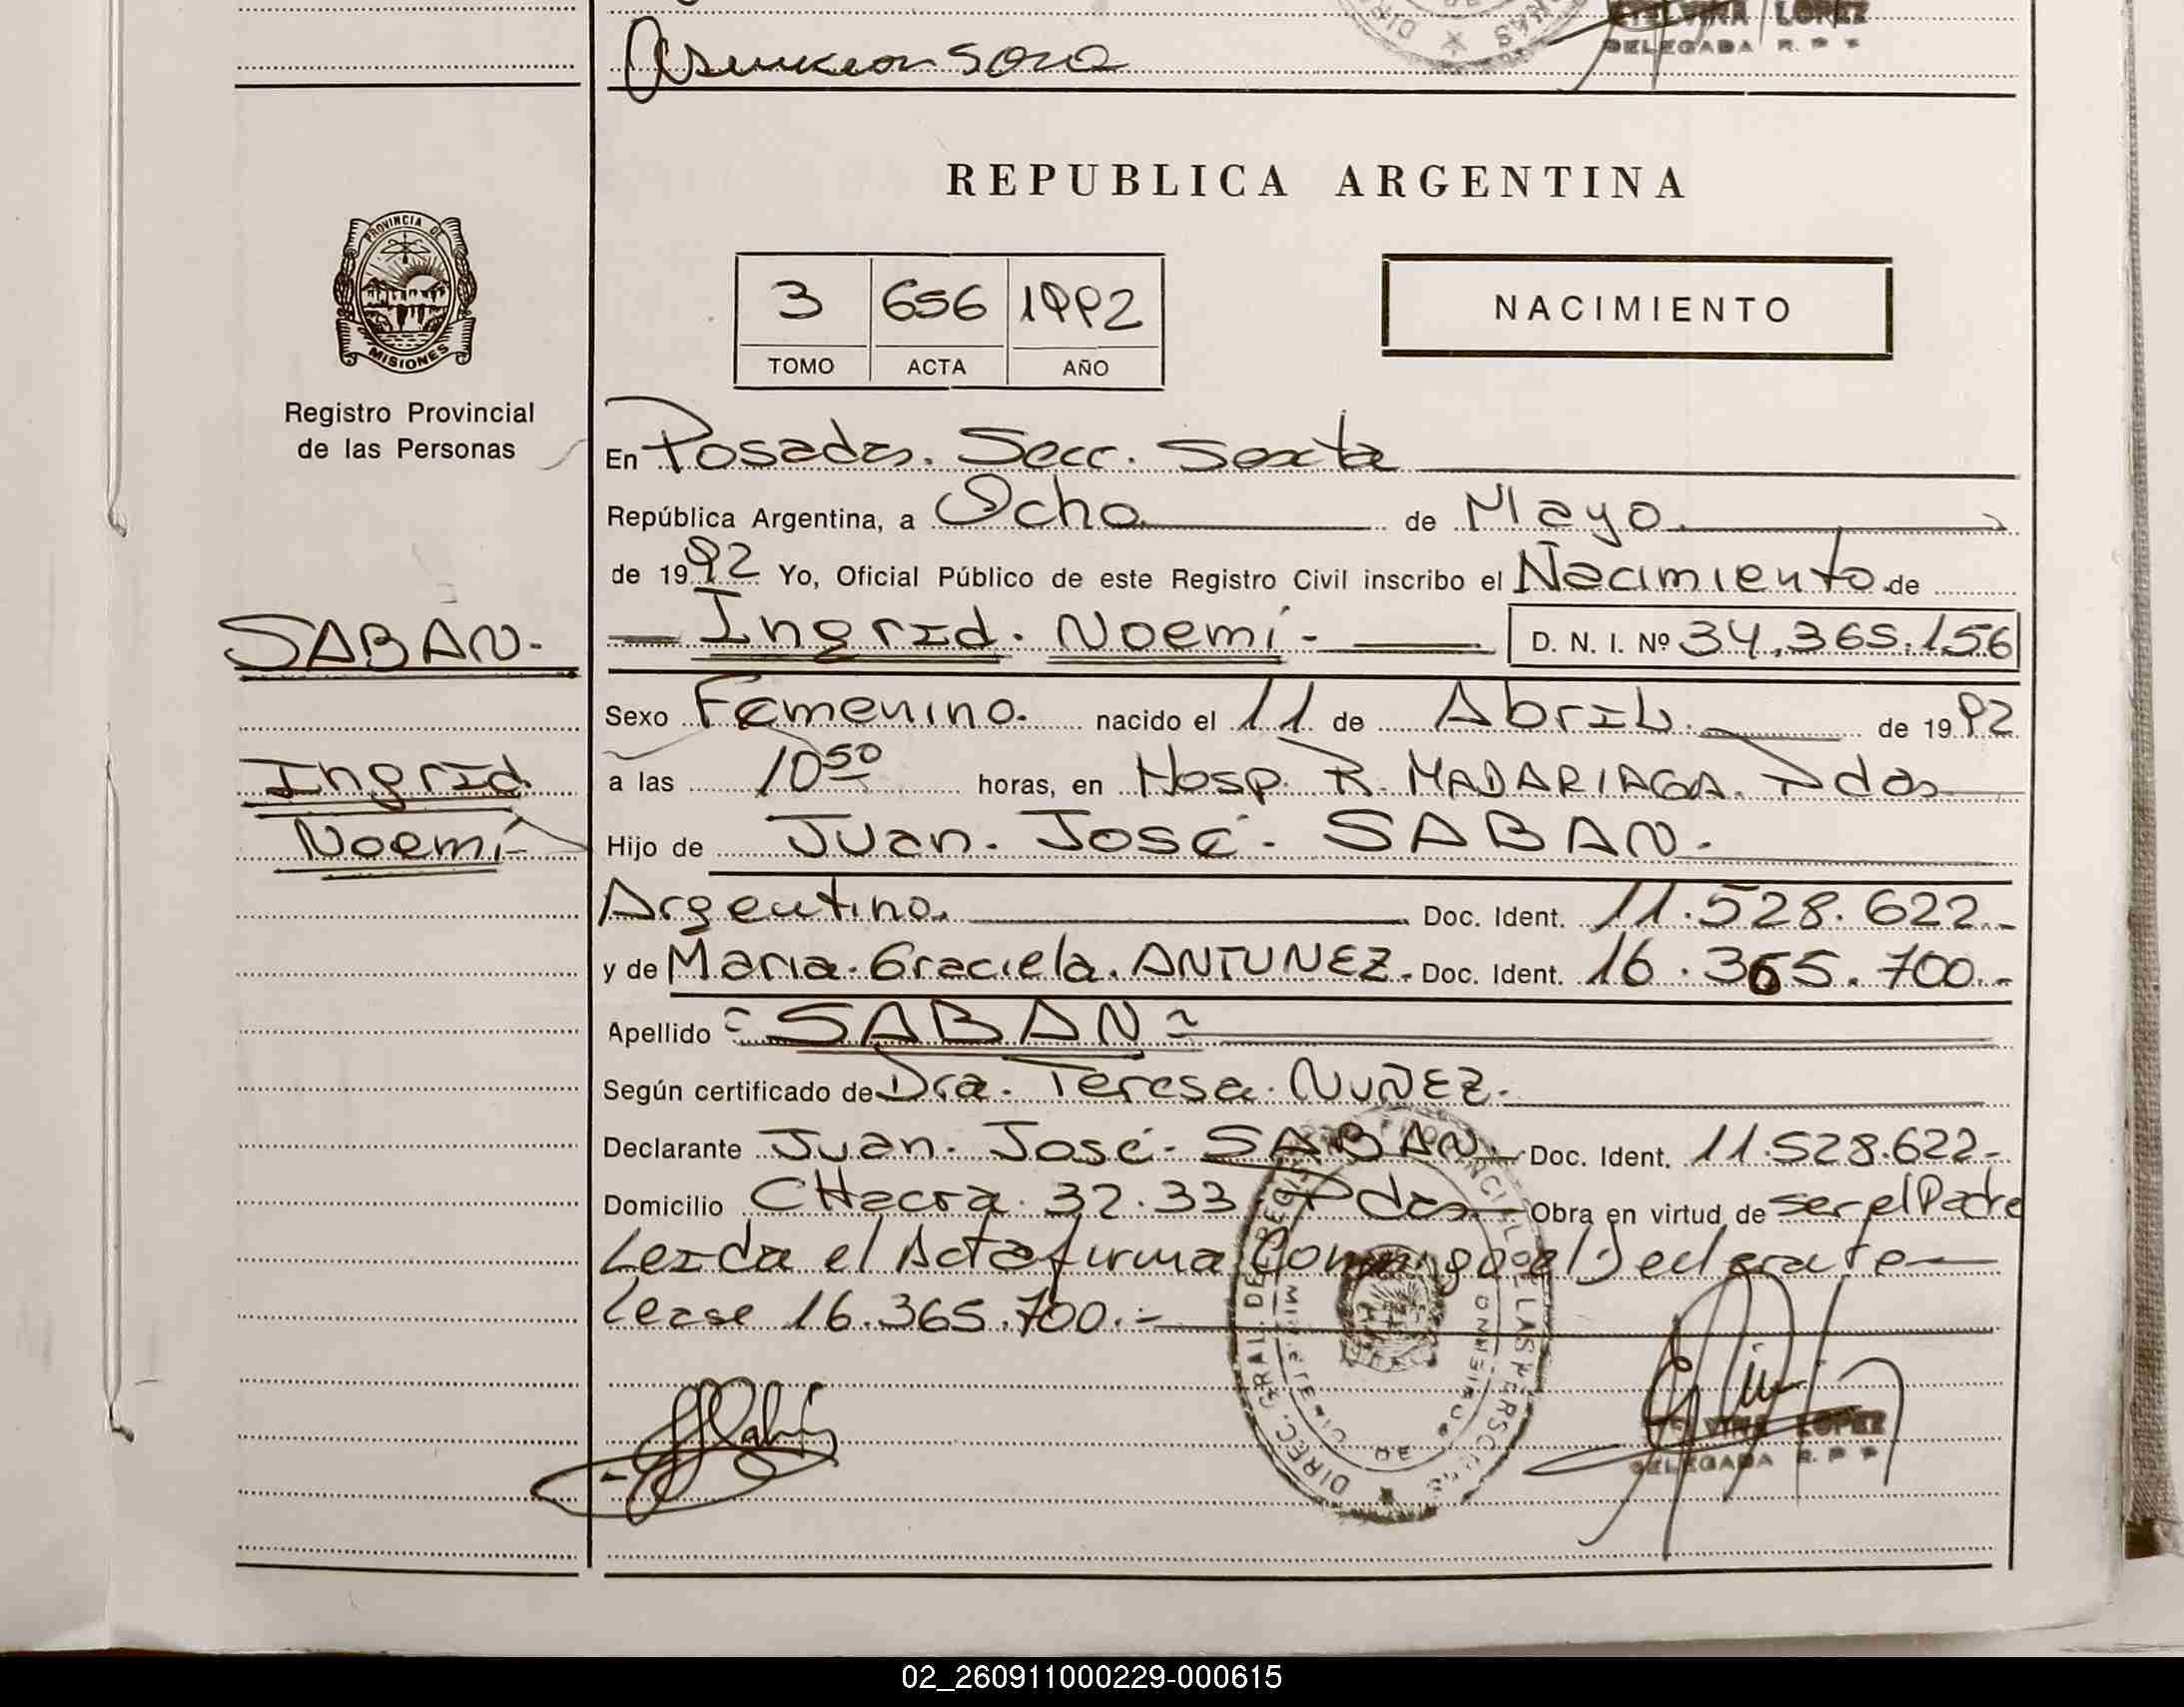 Asuncion Sosa
ETELVINA LOPEZ
DELEGADA R. P. P.
REPUBLICA ARGENTINA
PROVINCIA DE
MISIONES
Registro Provincial
de las Personas
3 656 1992
TOMO ACTA AÑO
NACIMIENTO
En Posadas. Secc. Sexta
República Argentina, a Ocho de Mayo
de 1992 Yo, Oficial Público de este Registro Civil inscribo el Nacimiento de
SABAN.-
Ingrid. Noemí - D. N. I. Nº 34.365.156
Sexo Femenino. nacido el 11 de Abril. de 1992
Ingrid
a las 10 50 horas, en Hosp. R. MADARIAGA. Pdas
Noemí-
Hijo de Juan. José. SABAN.
Argentino. Doc. Ident. 11.528.622.-
y de Maria. Graciela. ANTUNEZ. Doc. Ident. 16.365.700.-
Apellido = SABAN =
Según certificado de Dra. Teresa. NUÑEZ.
Declarante Juan. José. SABAN. Doc. Ident. 11.528.622-
Domicilio CHacra. 32.33 Pdas Obra en virtud de ser el Padre
Leida el Acta firma Conmigo el Declarante
lease 16.365.700.-
DIREC. GRAL. DE
DELEGADA R. P. P.
02_260911000229-000615